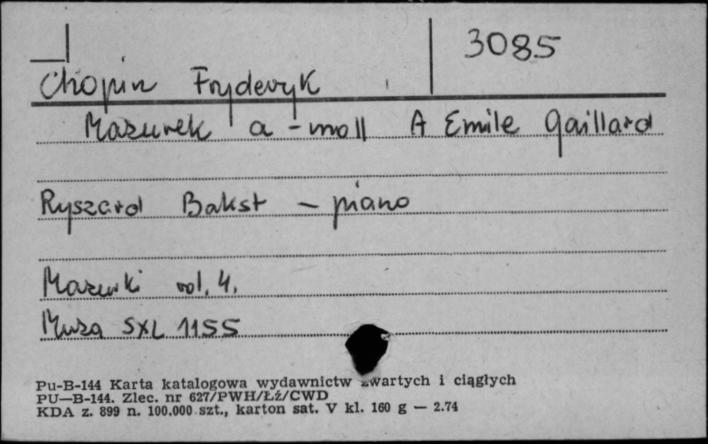 3085
Chopin Fryderyk
Mazurek a-moll A Emile Gaillard
Ryszard Bakst – piano
Mazurki vol. 4.
Muza SXL 1155
Pu-B-144 Karta katalogowa wydawnictw zwartych i ciągłych
PU—B-144. Zlec. nr 627/PWH/Łź/CWD
KDA z. 899 n. 100.000 szt., karton sat. V kl. 160 g — 2.74